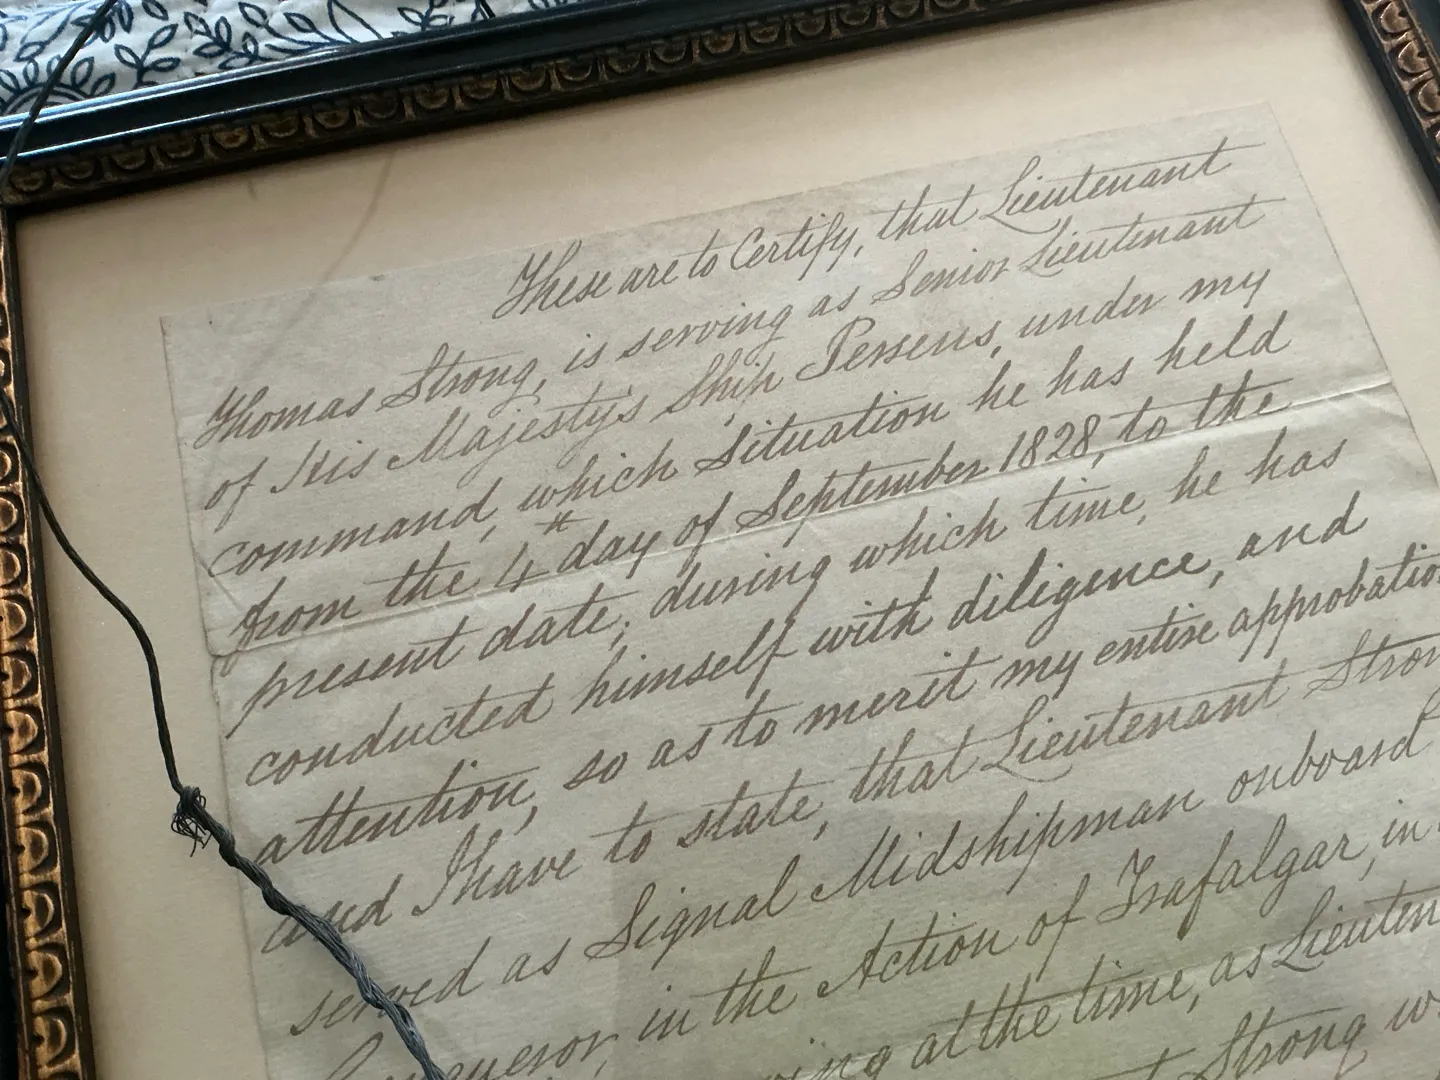 These are to Certify, that Lieutenant
Thomas Strong, is serving as Senior Lieutenant
of His Majesty's Ship Perseus, under my
command, which Situation he has held
from the 4th day of September 1828, to the
present date; during which time, he has
conducted himself with diligence, and
attention, so as to merit my entire approbatio
and I have to state, that Lieutenant Stron
served as Signal Midshipman onboard
in the Action of Trafalgar, in
at the time, as Lieuten
Strong